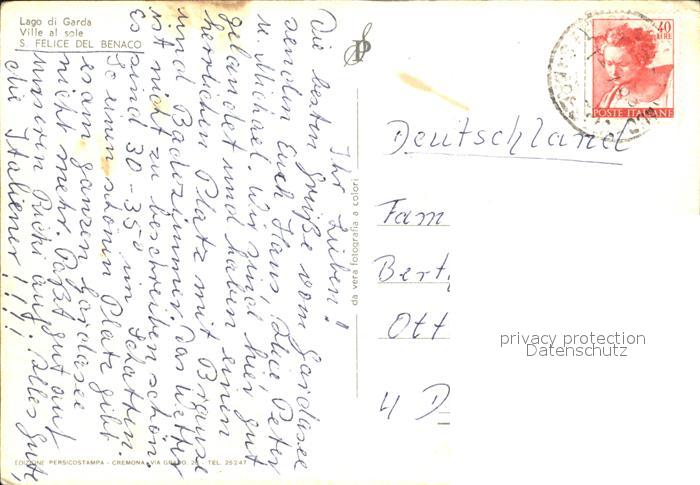 Lago di Garda
Ville al sole
S. FELICE DEL BENACO
Ihr Lieben!
Die besten Grüße vom Gardasee
senden Euch Hans, Peter
u. Michael. Wir sind hier gut
gelandet und haben einen
herrlichen Platz mit Brause
und Badezimmer. Das Wetter
ist nicht zu beschreiben schön
Es sind 30-35° im Schatten.
So einen schönen Platz gibt
es am ganzen Gardasee
nicht mehr. Paßt gut auf
unseren Puchi auf. Alles Gute,
die Italiener!!!
da vera fotografia a colori
SP
40
LIRE
POSTE ITALIANE
Deutschland
Fam
Bert
Ott
4 D
privacy protection
Datenschutz
EDIZIONE PERSICOSTAMPA - CREMONA - VIA - TEL. 25247